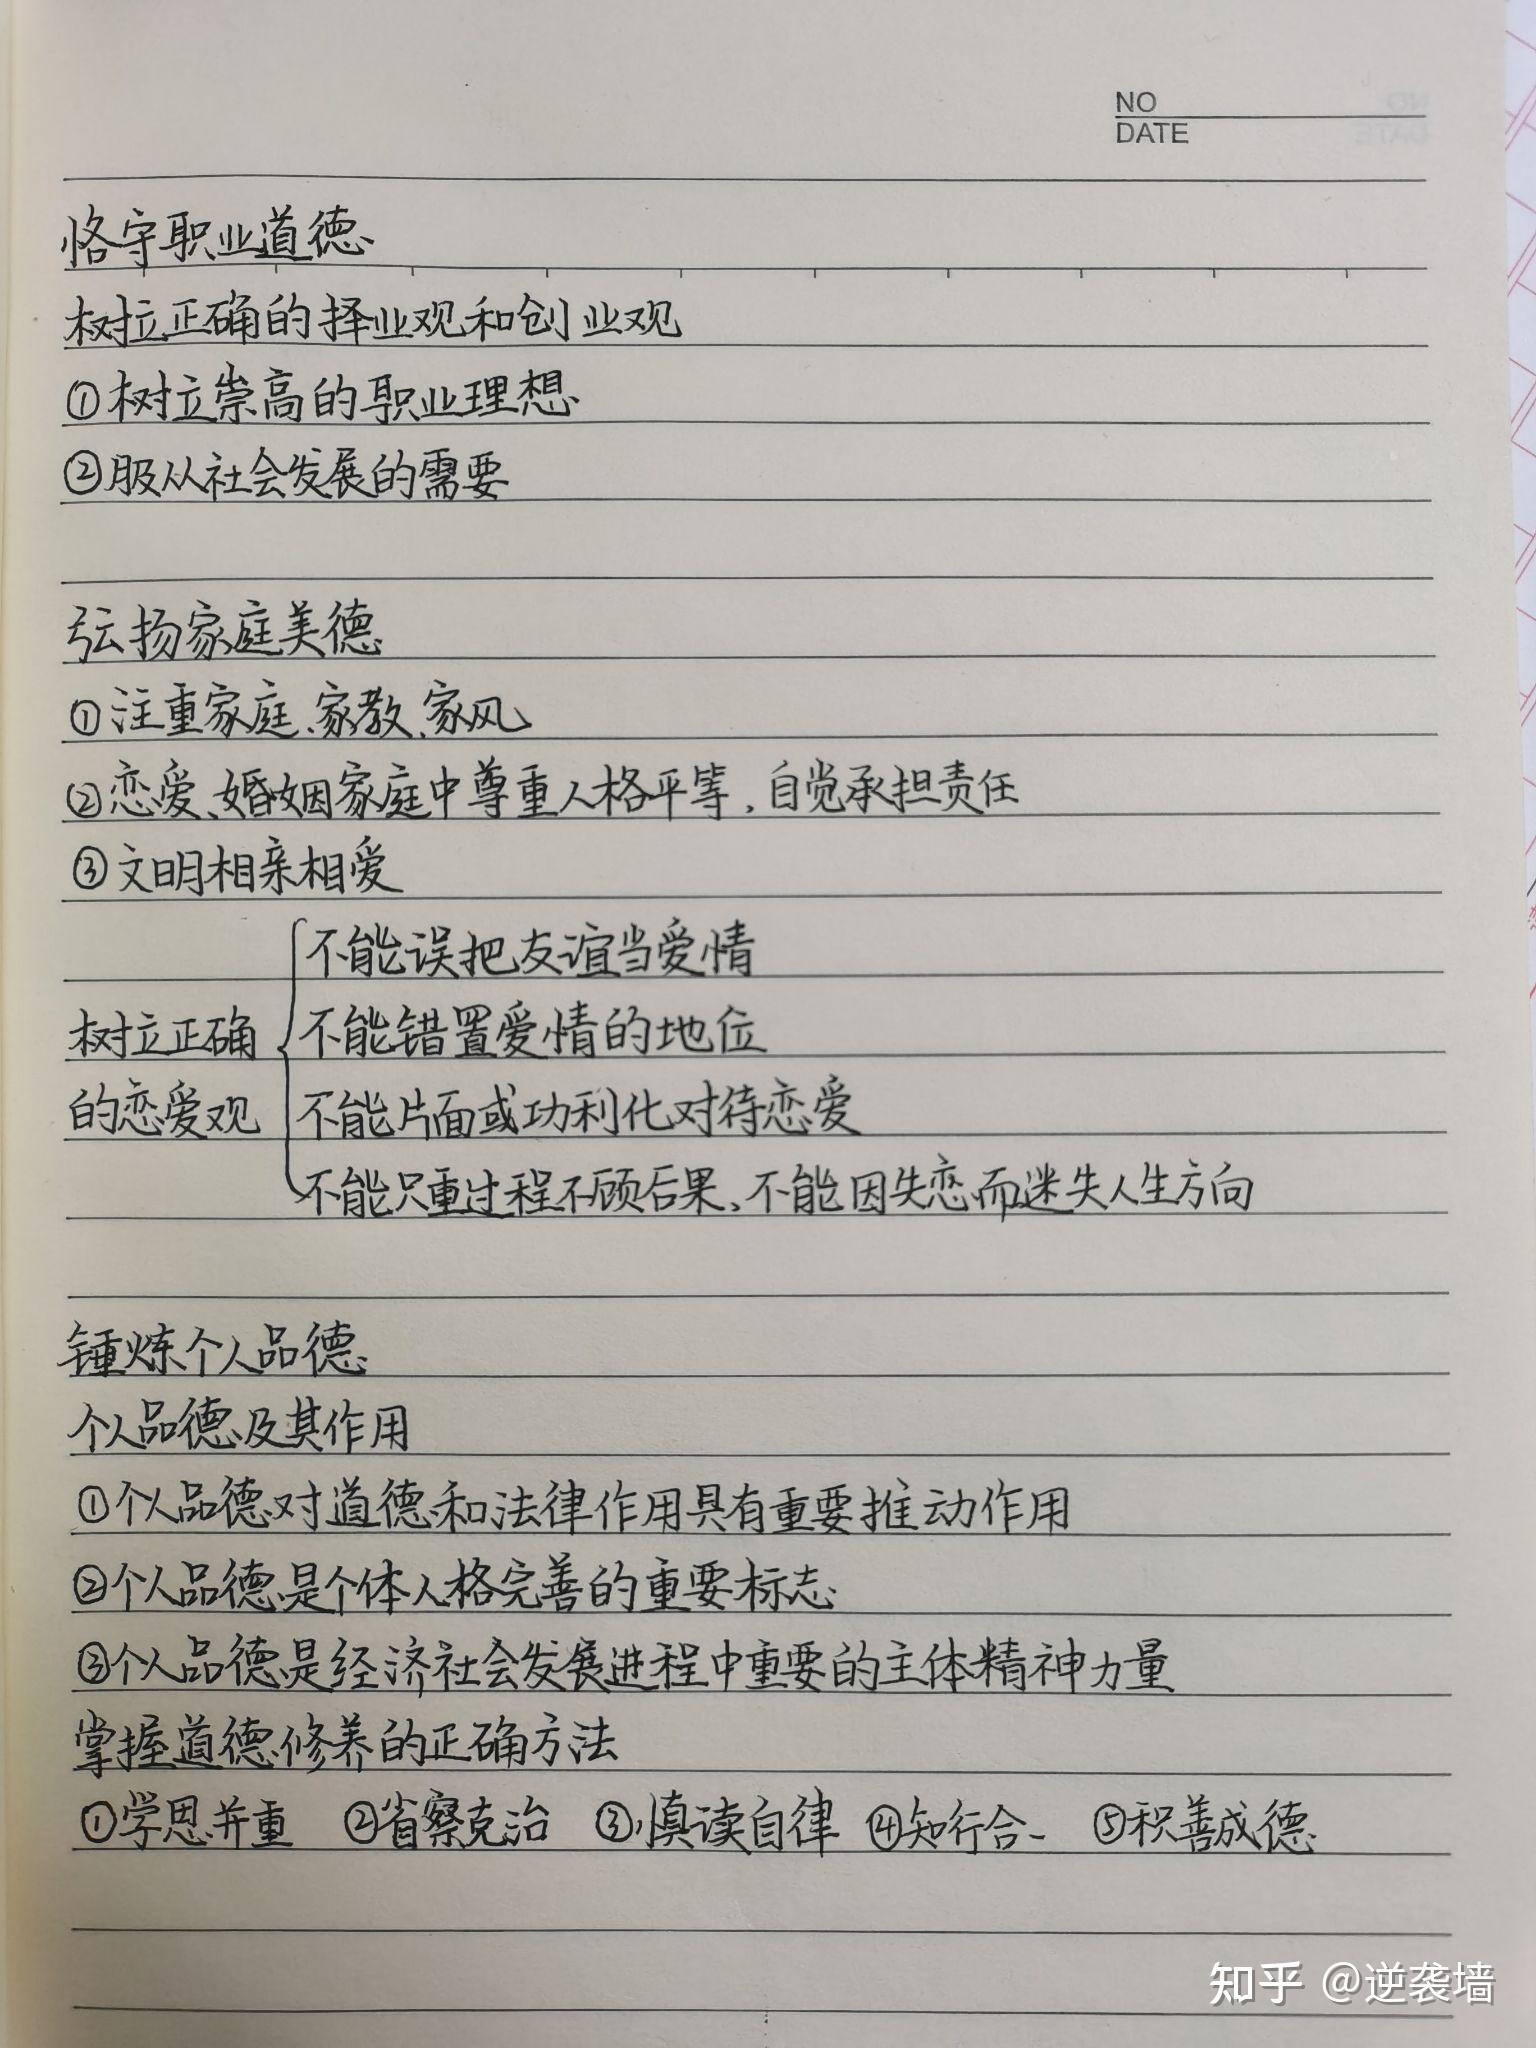 NO
DATE
恪守职业道德
树立正确的择业观和创业观
①树立崇高的职业理想
②服从社会发展的需要
弘扬家庭美德
①注重家庭、家教、家风
②恋爱、婚姻家庭中尊重人格平等,自觉承担责任
③文明相亲相爱
不能误把友谊当爱情
树立正确 不能错置爱情的地位
的恋爱观 不能片面或功利化对待恋爱
不能只重过程不顾后果、不能因失恋而迷失人生方向
锤炼个人品德
个人品德及其作用
①个人品德对道德和法律作用具有重要推动作用
②个人品德是个体人格完善的重要标志
③个人品德是经济社会发展进程中重要的主体精神力量
掌握道德修养的正确方法
①学思并重 ②省察克治 ③慎读自律 ④知行合一 ⑤积善成德
知乎 @逆袭墙